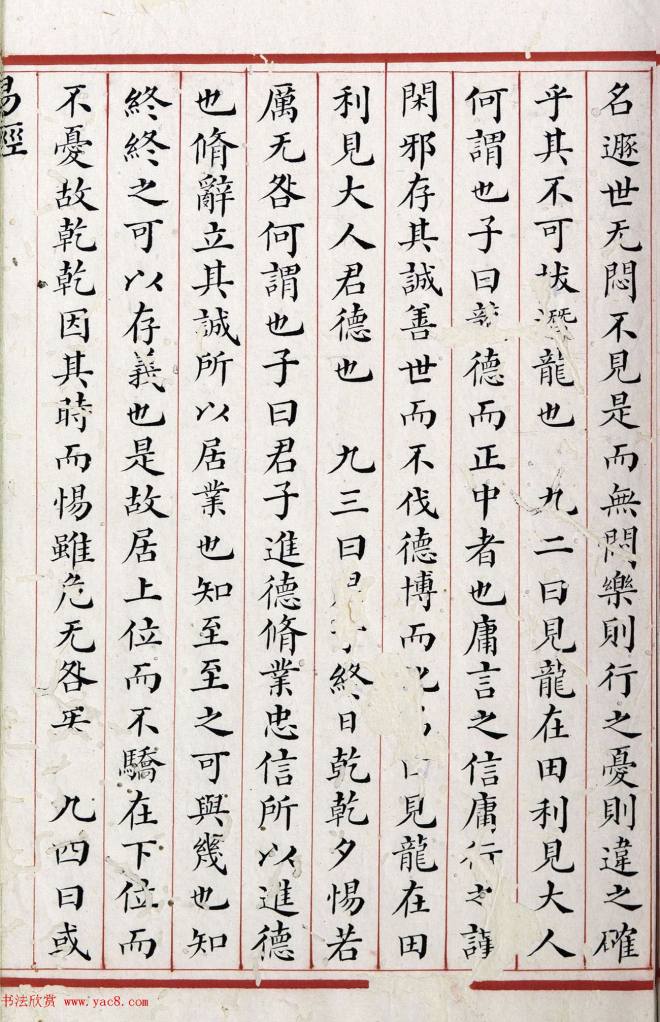 名遯世无悶不見是而無悶樂則行之憂則違之確
乎其不可拔潛龍也 九二曰見龍在田利見大人
何謂也子曰龍德而正中者也庸言之信庸行之謹
閑邪存其誠善世而不伐德博而化易曰見龍在田
利見大人君德也 九三曰君子終日乾乾夕惕若
厲无咎何謂也子曰君子進德脩業忠信所以進德
也脩辭立其誠所以居業也知至至之可與幾也知
終終之可以存義也是故居上位而不驕在下位而
不憂故乾乾因其時而惕雖危无咎矣 九四曰或
易經
书法欣赏 www.yac8.com